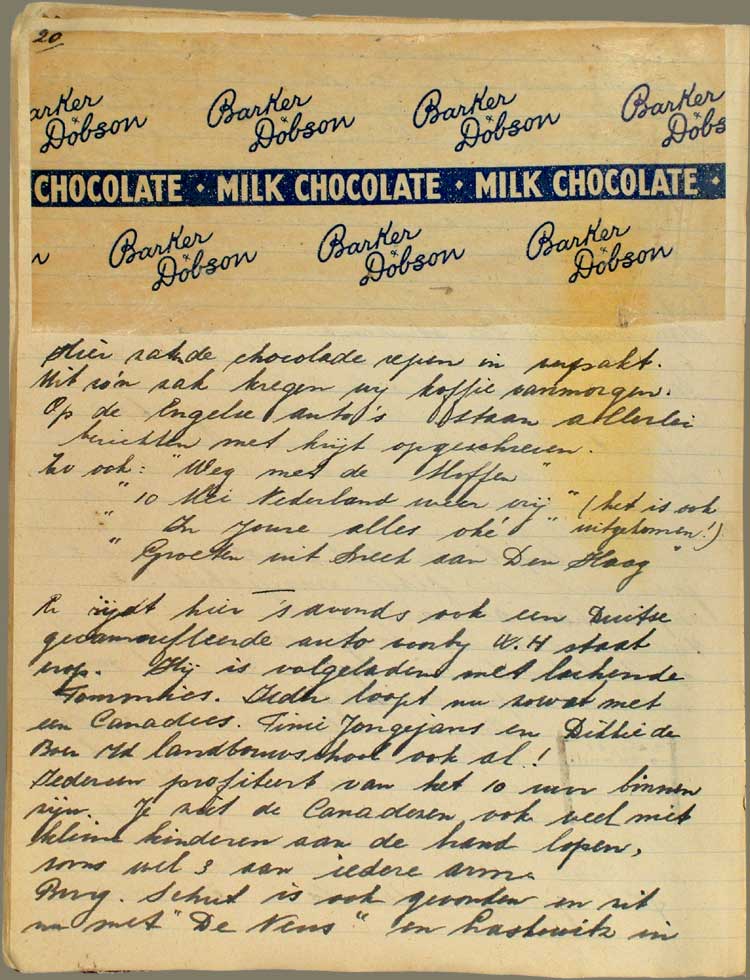 20
arker & Dobson Barker & Dobson Barker & Dobson Barker & Dobs
CHOCOLATE · MILK CHOCOLATE · MILK CHOCOLATE ·
n Barker & Dobson Barker & Dobson Barker & Dobson
Hier zaten de chocolade repen in verpakt.
Uit zo'n zak kregen wij koffie vanmorgen.
Op de Engelse auto's staan allerlei
berichten met krijt opgeschreven.
Zo ook: "Weg met de Moffen"
" 10 Mei Nederland weer vrij" (het is ook
" In Joure alles oké" uitgekomen!)
" Groeten uit Sneek aan Den Haag"
Er rijdt hier 's avonds ook een Duitse
gecamoufleerde auto voorbij W.H staat
erop. Hij is volgeladen met lachende
Tommies. Ieder loopt nu zowat met
een Canadees. Tinie Jongejans en Dittie de
Boer v/d landbouwschool ook al!
Iedereen profiteert van het 10 uur binnen
zijn. Je ziet de Canadezen, ook veel met
kleine kinderen aan de hand lopen,
soms wel 3 aan iedere arm.
Burg. Schut is ook gevonden en zit
nu met "De Neus" en in